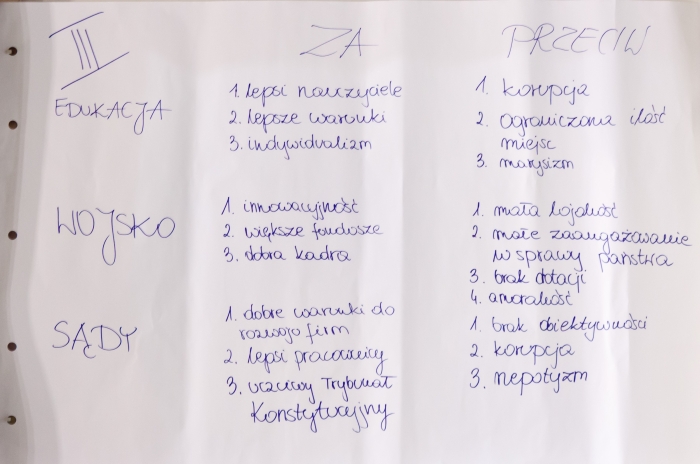 III ZA PRZECIW
EDUKACJA
1. lepsi nauczyciele
2. lepsze warunki
3. indywidualizm
1. korupcja
2. ograniczona ilość
miejsc
3. marksizm
WOJSKO
1. innowacyjność
2. większe fundusze
3. dobra kadra
1. mała lojalność
2. małe zaangażowanie
w sprawy państwa
3. brak dotacji
4. amoralność
SĄDY
1. dobre warunki do
rozwoju firm
2. lepsi pracownicy
3. uczciwy Trybunał
Konstytucyjny
1. brak obiektywności
2. korupcja
3. nepotyzm